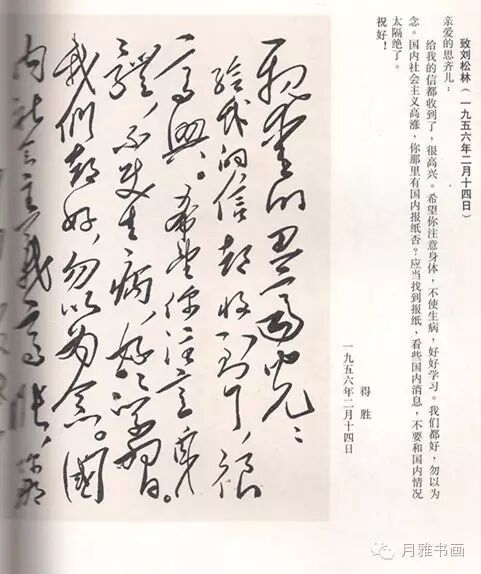 致刘松林(一九五六年二月十四日)
亲爱的思齐儿:
给我的信都收到了,很高兴。希望你注意身体,不使生病,好好学习。我们都好,勿以为
念。国内社会主义高涨,你那里有国内报纸否?应当找到报纸,看些国内消息,不要和国内情况
太隔绝了。
祝好!
得胜
一九五六年二月十四日
亲爱的思齐儿:
给我的信都收到了,很
高兴。希望你注意身
体,不使生病,好好学习。
我们都好,勿以为念。國
内社会主义高涨,你那
月雅书画